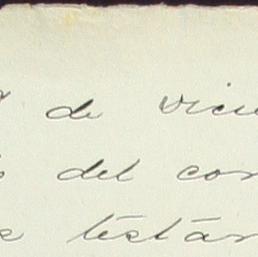 de vici
del con
testán